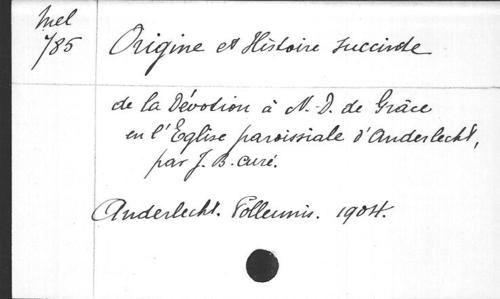 Mel
785
Origine et Histoire succincte
de la Dévotion à N.-D. de Grâce
en l'Eglise paroissiale d'Anderlecht,
par J. B. curé.
Anderlecht. Polleunis. 1904.